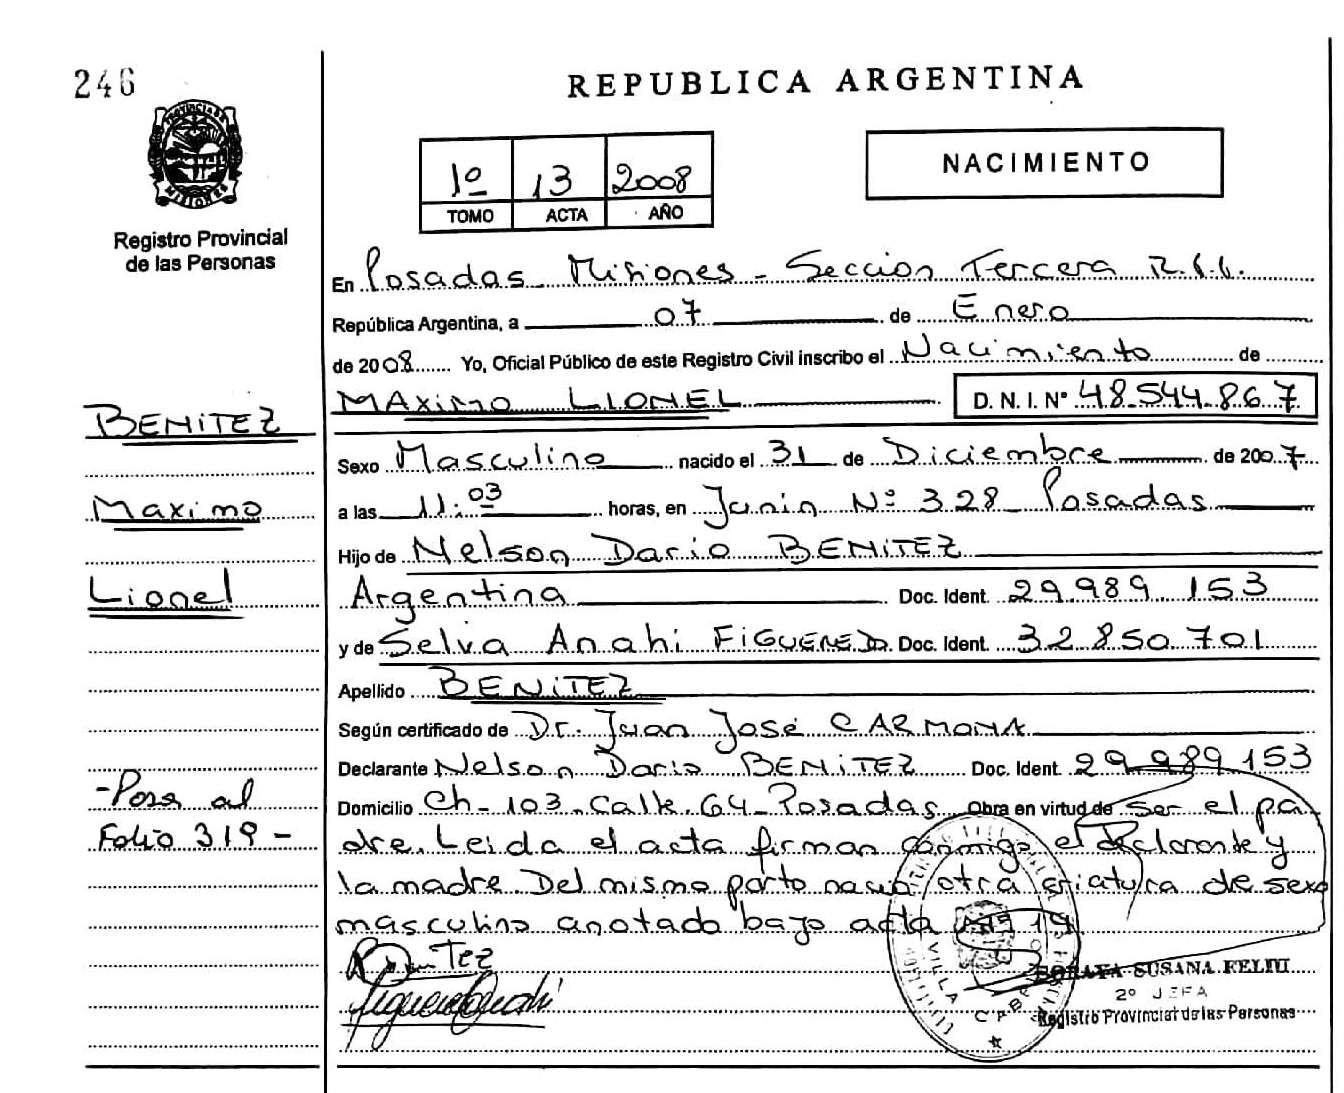 246
REPUBLICA ARGENTINA
1º 13 2008
TOMO ACTA AÑO
NACIMIENTO
PROVINCIA DE
MISIONES
Registro Provincial
de las Personas
En Posadas Misiones - Seccion Tercera
República Argentina, a 07 de Enero
de 2008 Yo, Oficial Público de este Registro Civil inscribo el Nacimiento de
MAXIMO LIONEL D. N. I. Nº 48.544.867
BENITEZ
Sexo Masculino nacido el 31 de Diciembre de 2007
Maximo
a las 11:03 horas, en Junin Nº 328 Posadas
Hijo de Nelson Dario BENITEZ
Lionel
Argentina Doc. Ident. 29.989.153
y de Selva Anahi FIGUEREDO Doc. Ident. 32.850.701
Apellido BENITEZ
Según certificado de Dr. Juan José CARMONA
Declarante Nelson Dario BENITEZ Doc. Ident. 29.989.153
-Pasa al
Domicilio Ch-103-Calle 64-Posadas Obra en virtud de ser el pa
Folio 319-
dre. Leida el acta firman conmigo el declarante y
la madre. Del mismo parto nacio otra criatura de sexo
masculino anotado bajo acta
VILLA CABELLO
SORAYA SUSANA FELTU
2º JEFA
Registro Provincial de las Personas